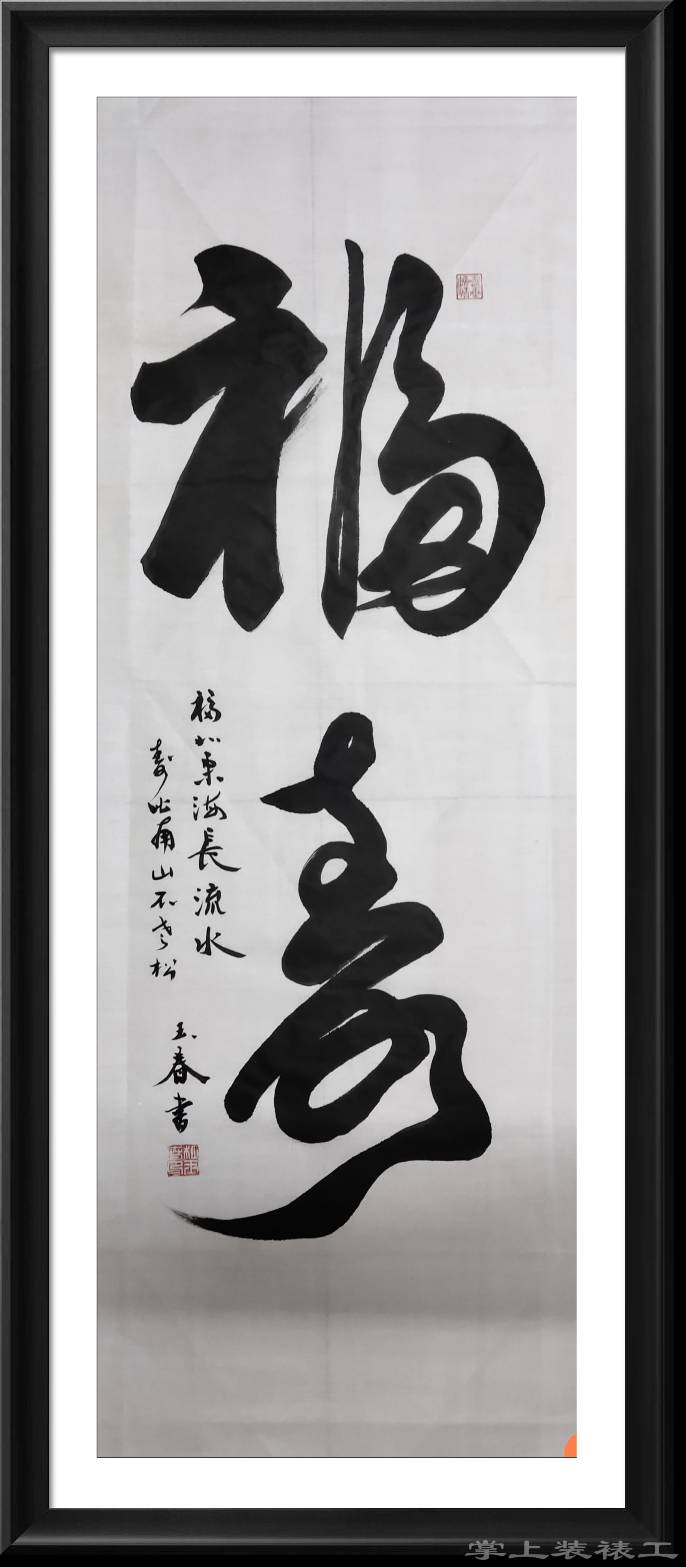 福壽
福如東海長流水
寿比南山不老松
玉春書
掌上装裱工